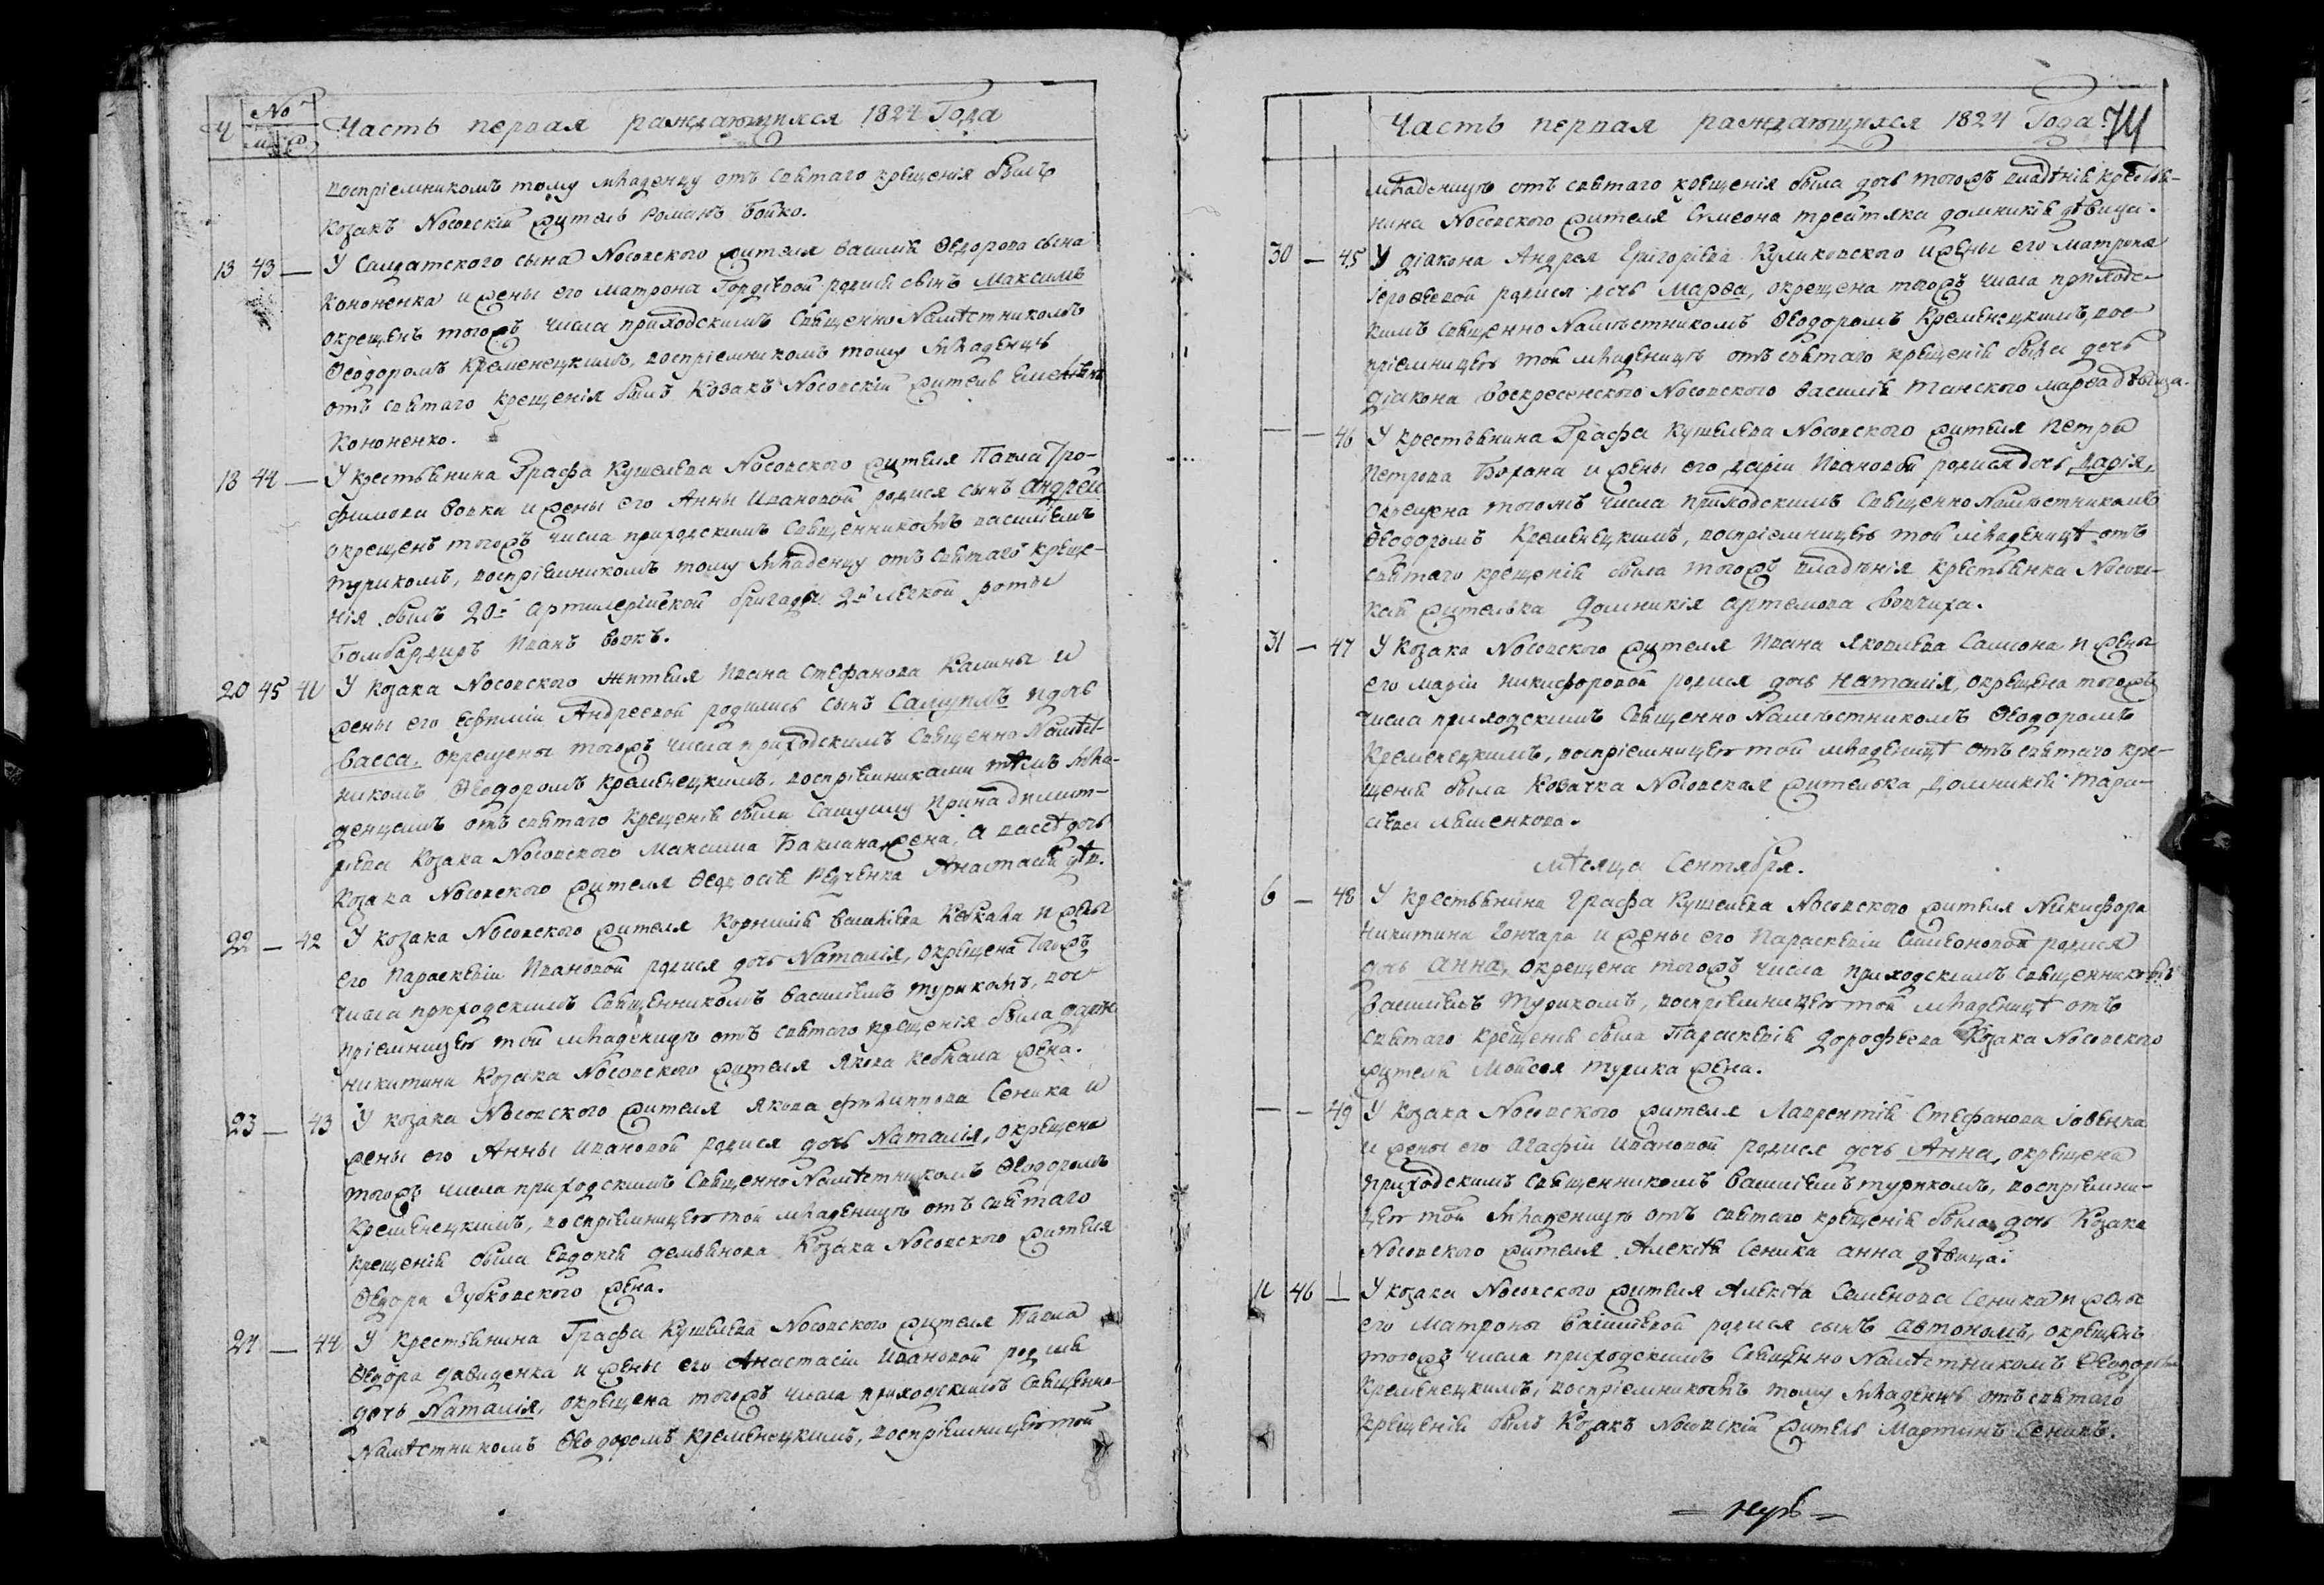 Ч № м. ж. Часть первая раждающихся 1824 Года
воспріемникомъ тому младенцу отъ святаго крещенія былъ
козакъ Носовскій житель Романъ Бойко.
13 43 — У Салдатского сына Носовского жителя Василія Федорова сына
Кононенка и жены его Матрона Гордѣевой родися сынъ Максимъ
окрещенъ тогожъ числа приходскимъ Священно Намѣстникомъ
Феодоромъ Кременецкимъ, воспріемникомъ тому младенцу
отъ святаго крещенія былъ Козакъ Носовскій житель Емелянъ
Кононенко.
18 44 — У крестьянина Графа Кушелева Носовского жителя Павла Тро-
фимова Вовка и жены его Анны Ивановой родися сынъ Андрей
окрещенъ тогожъ числа приходскимъ Священникомъ Василіемъ
Турикомъ, воспріемникомъ тому младенцу отъ святаго креще-
нія былъ 20й Артилерійской бригады 2й легкой роты
Бомбардиръ Иванъ Вовкъ.
20 45 41 У козака Носовского жителя Ивана Стефанова Калины и
жены его Евфиміи Андреевой родились сынъ Самуилъ и дочь
Васса, окрещены тогожъ числа приходскимъ Священно Намѣст-
никомъ Феодоромъ Кременецкимъ, воспріемниками тѣмъ мла-
денцамъ отъ святаго крещенія были Самуилу Ирина
Козака Носовского Максима Баклана жена, а Вассѣ дочь
Козака Носовского жителя Федосія Анастасія дѣв.
22 — 42 У козака Носовского жителя Корнилія Василіева Кевкала и жены
его Параскевіи Ивановой родися дочь Наталія, окрещена тогожъ
числа приходскимъ Священникомъ Василіемъ Турикомъ, вос-
пріемницею той младеницѣ отъ святаго крещенія была Дарія
Никитина Козака Носовского жителя Якова Кевкала жена.
23 — 43 У козака Носовского жителя Якова Филиппова Сеника и
жены его Анны Ивановой родися дочь Наталія, окрещена
тогожъ числа приходскимъ Священно Намѣстникомъ Феодоромъ
Кременецкимъ, воспріемницею той младеницѣ отъ святаго
крещенія была Евдокія Демьянова Козака Носовского жителя
Федора Зубковского жена.
24 — 44 У крестьянина Графа Кушелева Носовского жителя Павла
Федора Давиденка и жены его Анастасіи Ивановой родися
дочь Наталія, окрещена тогожъ числа приходскимъ Священно
Намѣстникомъ Феодоромъ Кременецкимъ, воспріемницею той
Часть первая раждающихся 1824 Года. 74
младеницѣ отъ святаго крещенія была дочь тогожъ владѣнія крестья-
нина Носовского жителя Симеона Третяка Домникія дѣвица.
30 — 45 У діакона Андрея Григоріева Куликовского и жены его Матрона
родися дочь Марѳа, окрещена тогожъ числа приходс-
кимъ Священно Намѣстникомъ Феодоромъ Кременецкимъ, вос
пріемницею той младеницѣ отъ святаго крещенія была дочь
діакона Воскресенского Носовского Василія Танского Марѳа дѣвица.
— — 46 У крестьянина Графа Кушелева Носовского жителя Петра
Петрова Борана и жены его Даріи Ивановой родися дочь Дарія,
окрещена тогожъ числа приходскимъ Священно Намѣстникомъ
Феодоромъ Кременецкимъ, воспріемницею той младеницѣ отъ
святаго крещенія была тогожъ владѣнія крестьянка Носовс-
кая жителька Домникія Артемова Вовчиха.
31 — 47 У козака Носовского жителя Ивана Яковлева Самсона и жены
его Маріи Никифоровой родися дочь Наталія, окрещена тогожъ
числа приходскимъ Священно Намѣстникомъ Феодоромъ
Кременецкимъ, воспріемницею той младеницѣ отъ святаго кре-
щенія была Козачка Носовская жителька Домникія Тара-
сіева Ляшенкова.
Мѣсяца Сентября.
6 — 48 У крестьянина Графа Кушелева Носовского жителя Никифора
Никитина Гончара и жены его Параскевіи Симеоновой родися
дочь Анна, окрещена тогожъ числа приходскимъ священникомъ
Василіемъ Турикомъ, воспріемницею той младеницѣ отъ
святаго крещенія была Параскевія Дорофеева Козака Носовского
жителя Мойсея Турика жена.
— — 49 У козака Носовского жителя Лаврентія Стефанова Іовенка
и жены его Агафіи Ивановой родися дочь Анна, окрещена
приходскимъ Священникомъ Василіемъ Турикомъ, воспріемни-
цею той младеницѣ отъ святаго крещенія была дочь Козака
Носовского жителя Алексѣя Сеника Анна дѣвица.
11 46 — У козака Носовского жителя Алексѣя Семенова Сеника и жены
его Матроны Василіевой родися сынъ Автономъ, окрещенъ
тогожъ числа приходскимъ Священно Намѣстникомъ Феодоромъ
Кременецкимъ, воспріемникомъ тому младенцу отъ святаго
крещенія былъ Козакъ Носовскій житель Мартинъ Сеникъ.